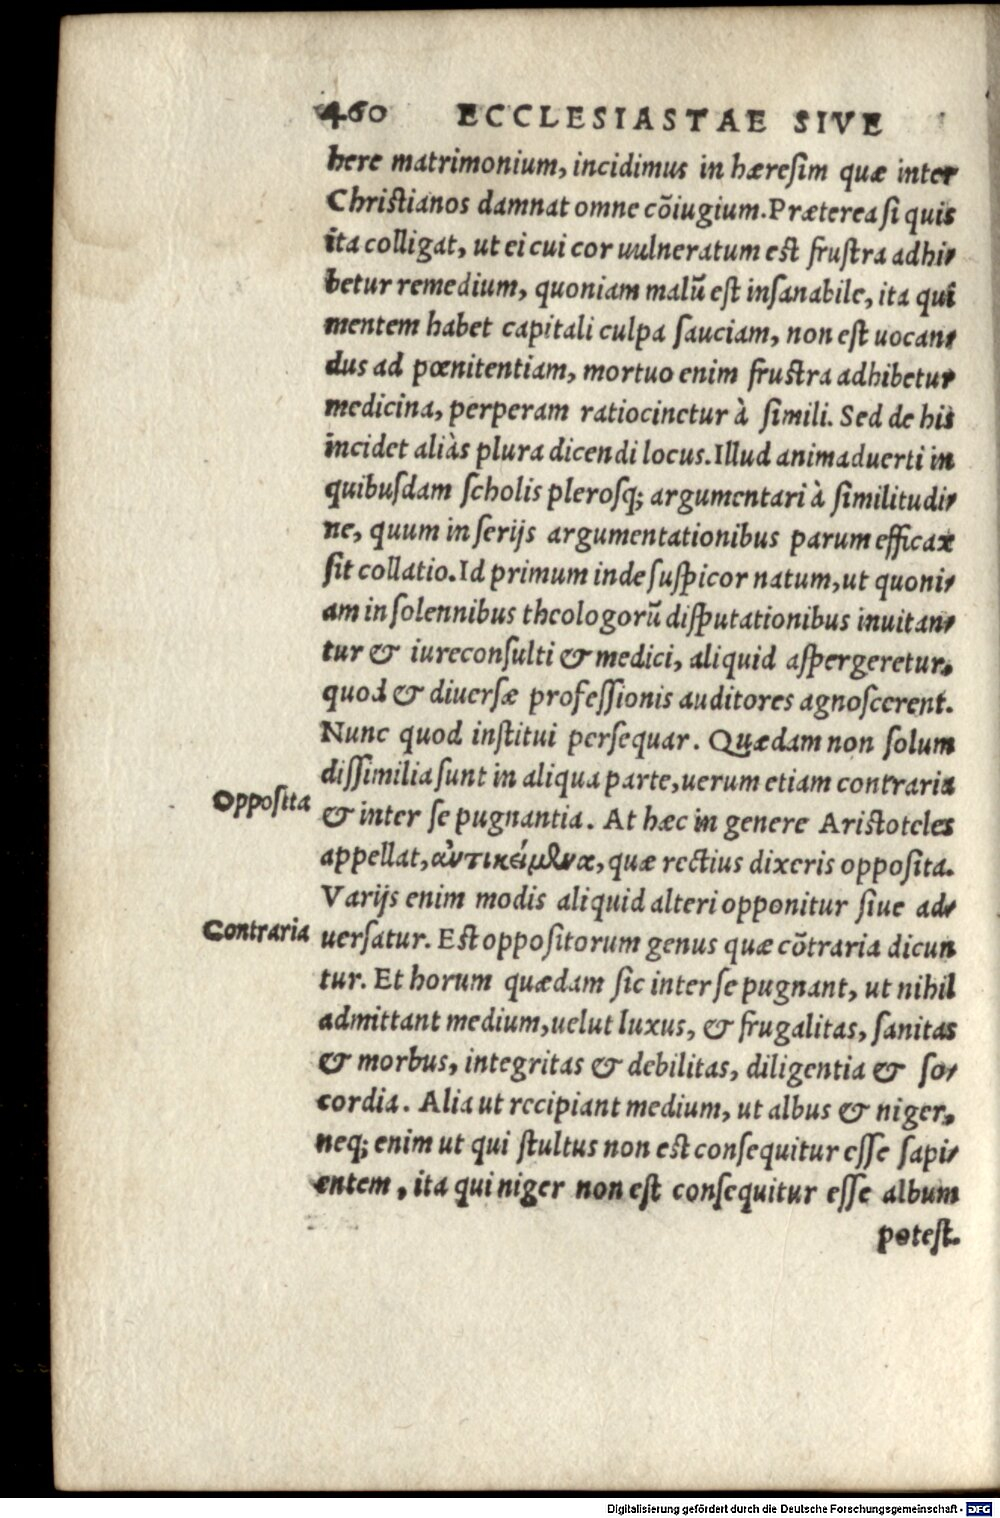 460 ECCLESIASTAE SIVE
bere matrimonium, incidimus in hæresim quæ inter
Christianos damnat omne cõiugium. Præterea si quis
ita colligat, ut ei cui cor uulneratum est frustra adhi-
betur remedium, quoniam malũ est insanabile, ita qui
mentem habet capitali culpa sauciam, non est uocan-
dus ad pœnitentiam, mortuo enim frustra adhibetur
medicina, perperam ratiocinetur à simili. Sed de his
incidet aliàs plura dicendi locus. Illud animaduerti in
quibusdam scholis plerosq; argumentari à similitudi-
ne, quum in serijs argumentationibus parum efficax
sit collatio. Id primum inde suspicor natum, ut quoni-
am in solennibus theologorũ disputationibus inuitan-
tur & iureconsulti & medici, aliquid aspergeretur,
quod & diuersæ professionis auditores agnoscerent.
Nunc quod institui persequar. Quædam non solum
dissimilia sunt in aliqua parte, uerum etiam contraria
Opposita
& inter se pugnantia. At hæc in genere Aristoteles
appellat, ἀντικείμενα, quæ rectius dixeris opposita.
Varijs enim modis aliquid alteri opponitur siue ad-
Contraria
uersatur. Est oppositorum genus quæ cõtraria dicun
tur. Et horum quædam sic inter se pugnant, ut nihil
admittant medium, uelut luxus, & frugalitas, sanitas
& morbus, integritas & debilitas, diligentia & so-
cordia. Alia ut recipiant medium, ut albus & niger,
neq; enim ut qui stultus non est consequitur esse sapi-
entem, ita qui niger non est consequitur esse album
potest.
Digitalisierung gefördert durch die Deutsche Forschungsgemeinschaft - DFG